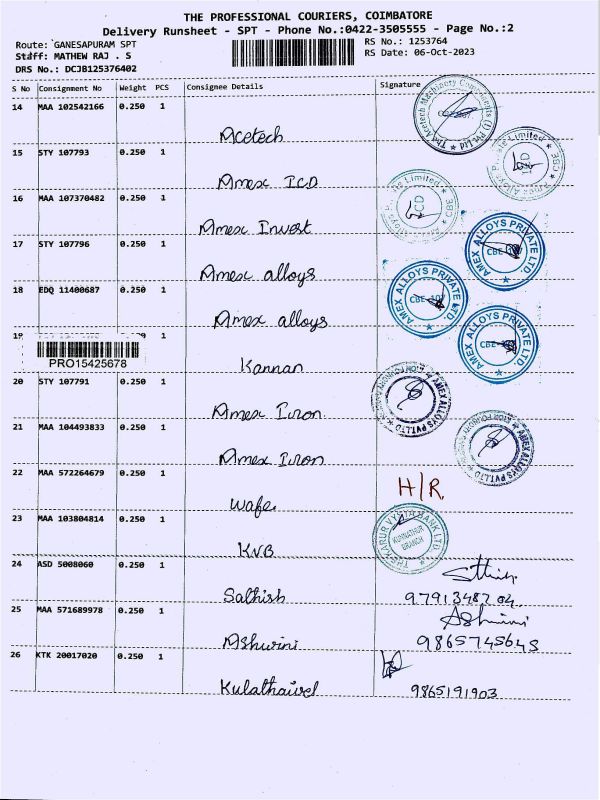 THE PROFESSIONAL COURIERS, COIMBATORE
Delivery Runsheet - SPT - Phone No.:0422-3505555 - Page No.:2
Route: GANESAPURAM SPT
RS No.: 1253764
Staff: MATHEW RAJ . S
RS Date: 06-Oct-2023
DRS No.: DCJB125376402
S No Consignment No Weight PCS Consignee Details Signature
14 MAA 102542166 0.250 1
Acetech
The Acetech Machinery Components (I) Pvt Ltd
15 STY 107793 0.250 1
Amex ICD
Amex Alloys Private Limited ICD CBE
16 MAA 107370482 0.250 1
Amex Invest
Private Limited ICD CBE
17 STY 107796 0.250 1
Amex alloys
AMEX ALLOYS PRIVATE LTD. CBE
18 EDQ 11400687 0.250 1
Amex alloys
AMEX ALLOYS PRIVATE LTD. CBE
19
PRO15425678
Kannan
AMEX ALLOYS PRIVATE LTD. CBE
20 STY 107791 0.250 1
Amex Iron
AMEX ALLOYS PVT LTD
21 MAA 104493833 0.250 1
Amex Iron
AMEX ALLOYS PVT LTD
22 MAA 572264679 0.250 1
Wafe
H/R
23 MAA 103804814 0.250 1
KVB
THE KARUR VYSYA BANK LTD.
BRANCH
24 ASD 5008060 0.250 1
Sathish
9791348704
25 MAA 571689978 0.250 1
Ashwini
Ashwini
9865745643
26 KTK 20017020 0.250 1
Kulathaivel
9865191903